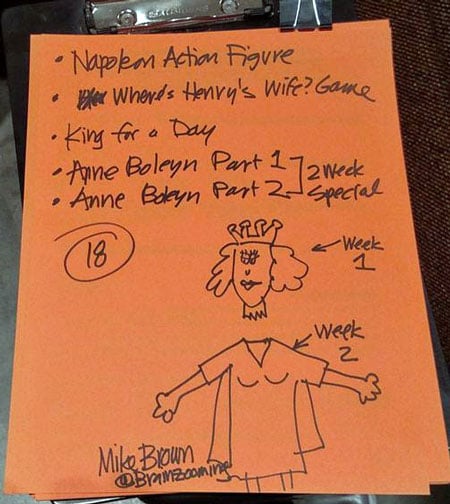 • Napoleon Action Figure
• Where's Henry's Wife? Game
• King for a Day
• Anne Boleyn Part 1
• Anne Boleyn Part 2
2 Week
Special
18
Week
1
Week
2
Mike Brown
@Brainzooming